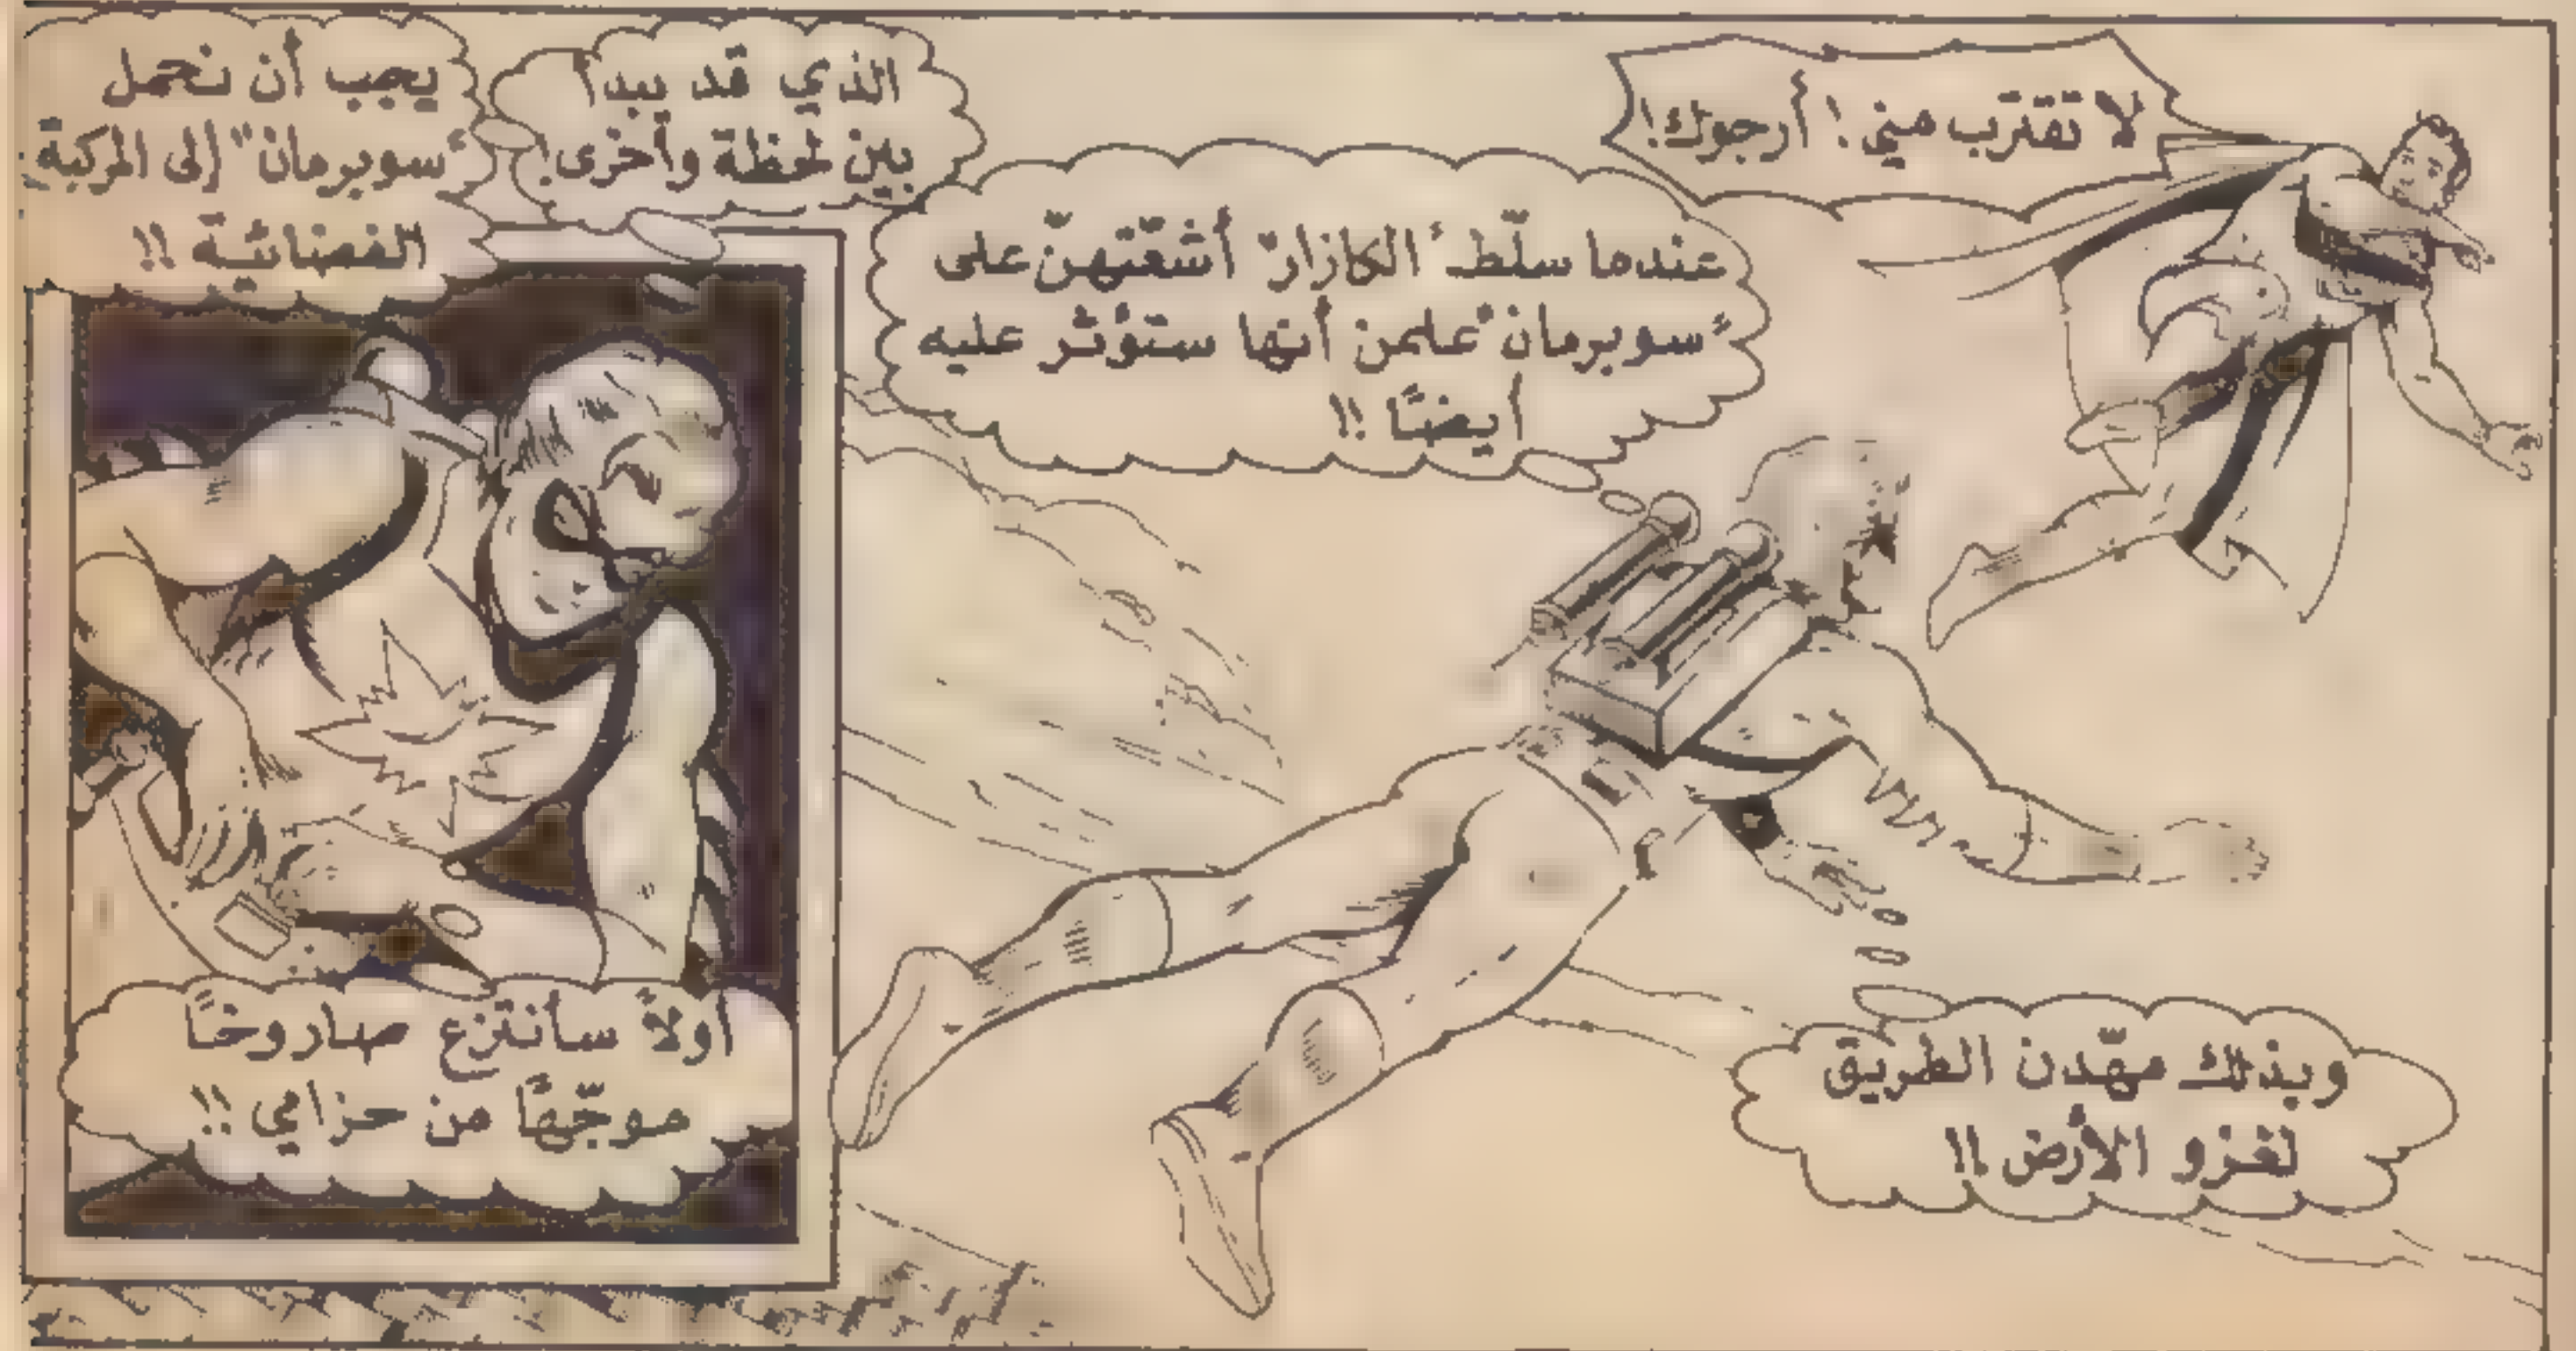 لا تقترب مني! أرجوك!
عندما سلّط "الكازار" أشعّتهنّ على
"سوبرمان" علمن أنها ستؤثر عليه
أيضًا !!
وبذلك مهّدن الطريق
لغزو الأرض !!
الذي قد يبدأ
بين لحظة وأخرى!
يجب أن نحمل
"سوبرمان" إلى المركبة
الفضائية !!
أولاً سأنتزع صاروخًا
موجّهًا من حزامي !!